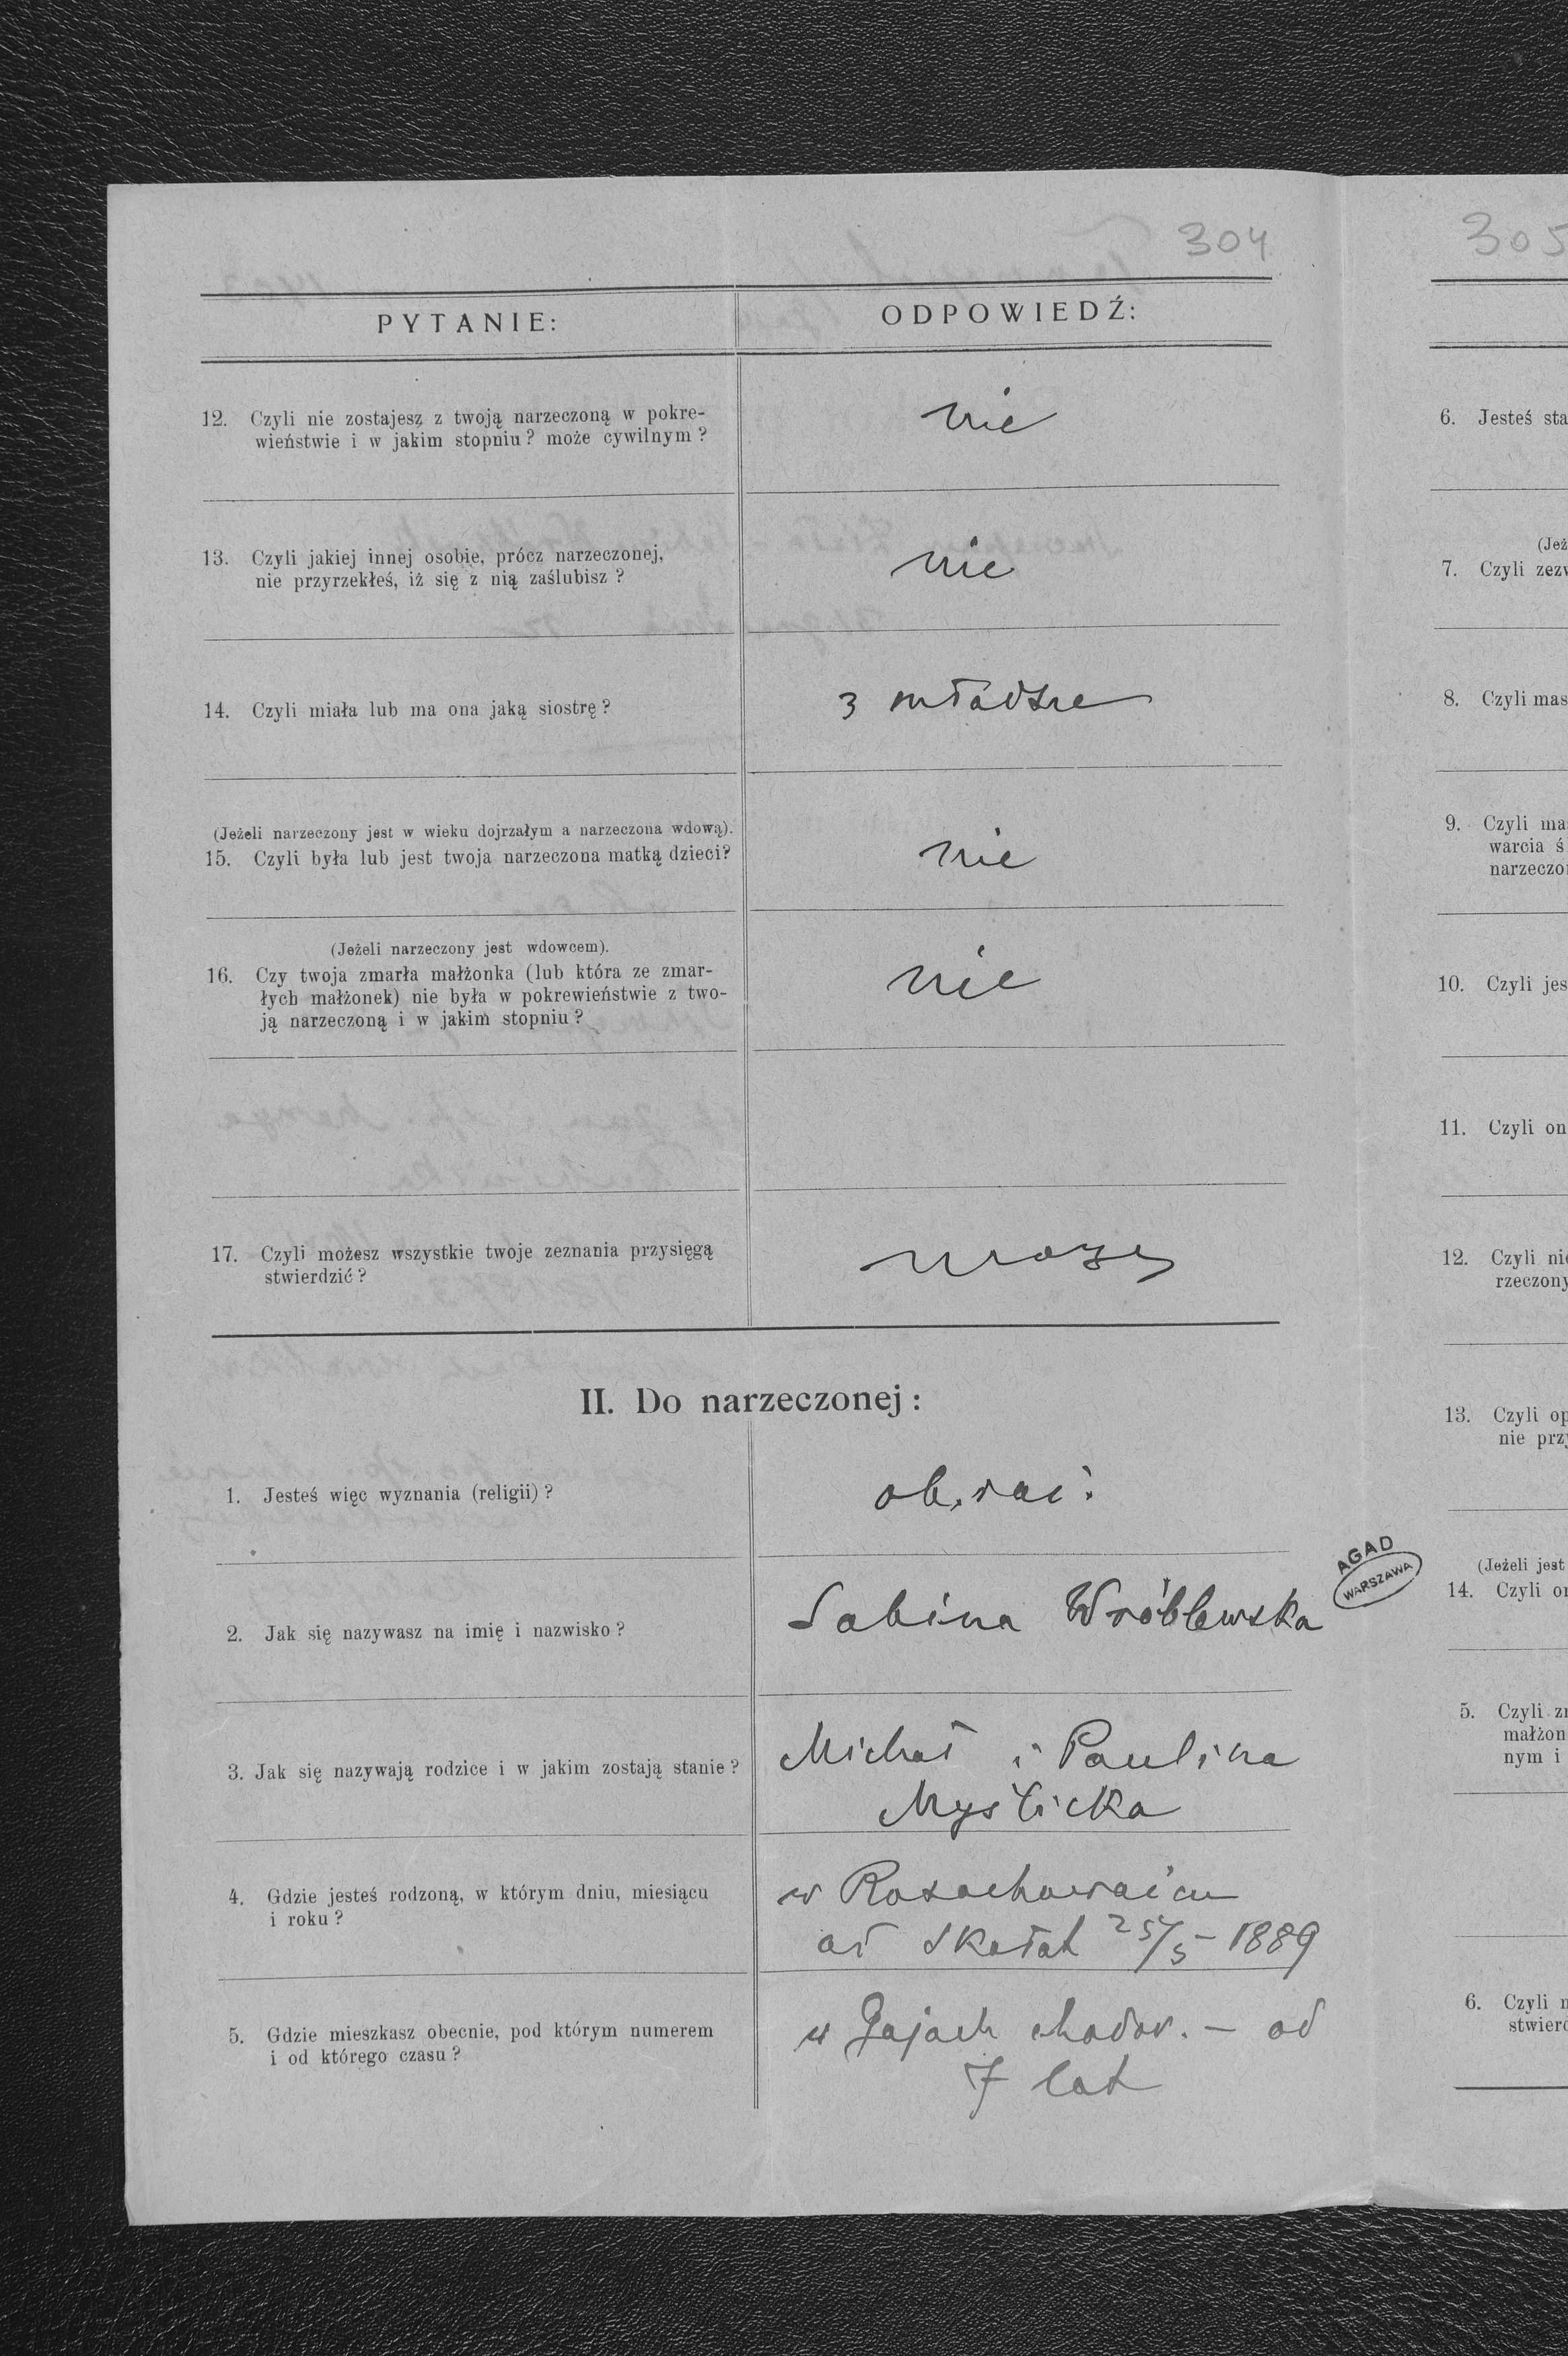 304
PYTANIE:
ODPOWIEDŹ:
12. Czyli nie zostajesz z twoją narzeczoną w pokre-
wieństwie i w jakim stopniu? może cywilnym?
nie
13. Czyli jakiej innej osobie, prócz narzeczonej,
nie przyrzekłeś, iż się z nią zaślubisz?
nie
14. Czyli miała lub ma ona jaką siostrę?
3 młodsze
(Jeżeli narzeczony jest w wieku dojrzałym a narzeczona wdową).
15. Czyli była lub jest twoja narzeczona matką dzieci?
nie
(Jeżeli narzeczony jest wdowcem).
16. Czy twoja zmarła małżonka (lub która ze zmar-
łych małżonek) nie była w pokrewieństwie z two-
ją narzeczoną i w jakim stopniu?
nie
17. Czyli możesz wszystkie twoje zeznania przysięgą
stwierdzić?
mogę
II. Do narzeczonej:
1. Jesteś więc wyznania (religii)?
ob. łać.
2. Jak się nazywasz na imię i nazwisko?
Sabina Wróblewska
3. Jak się nazywają rodzice i w jakim zostają stanie?
Michał i Paulina
Myślicka
4. Gdzie jesteś rodzoną, w którym dniu, miesiącu
i roku?
w Rosochowaćcu
Skałat 25/5 1889
5. Gdzie mieszkasz obecnie, pod którym numerem
i od którego czasu?
w Gajach chodor. — od
7 lat
AGAD
WARSZAWA
305
6. Jesteś sta
(Jeż
7. Czyli zezw
8. Czyli mas
9. Czyli ma
warcia ś
narzeczo
10. Czyli jes
11. Czyli on
12. Czyli nie
rzeczony
13. Czyli op
nie przy
(Jeżeli jest
14. Czyli o
5. Czyli z
małżon
nym i
6. Czyli
stwierd